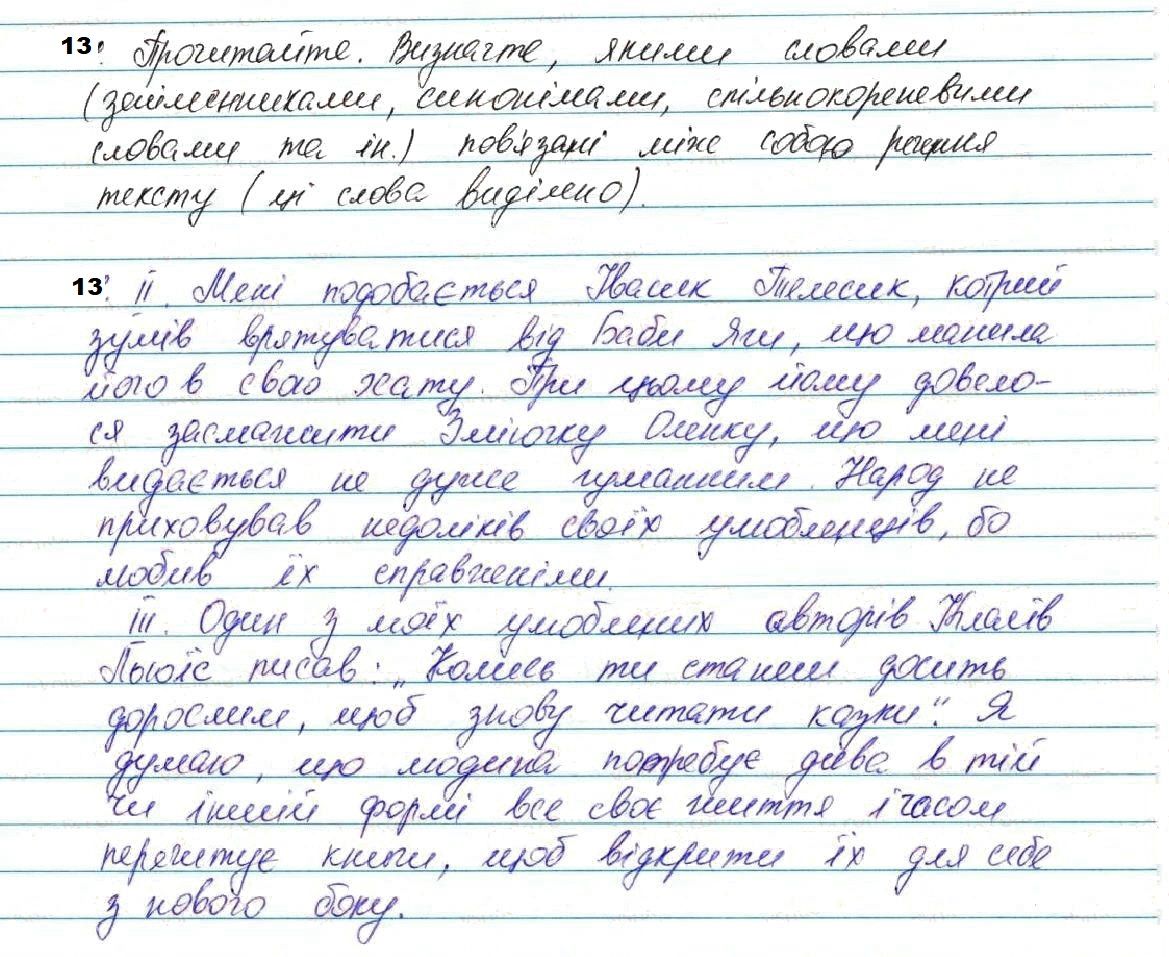 13. Прочитайте. Визначте, якими словами
(займенниками, синонімами, спільнокореневими
словами та ін.) пов'язані між собою речення
тексту (ці слова виділено).
13. II. Мені подобається Івасик Телесик, котрий
зумів врятуватися від Баби Яги, що манила
його в свою хату. При цьому йому довело-
ся засмажити Зміючку Оленку, що мені
видається не дуже гуманним. Народ не
приховував недоліків своїх улюбленців, бо
любив їх справжніми.
III. Один з моїх улюблених авторів Клайв
Льюїс писав: „Колись ти станеш досить
дорослим, щоб знову читати казки". Я
думаю, що людина потребує дива в тій
чи іншій формі все своє життя і часом
перечитує книги, щоб відкрити їх для себе
з нового боку.